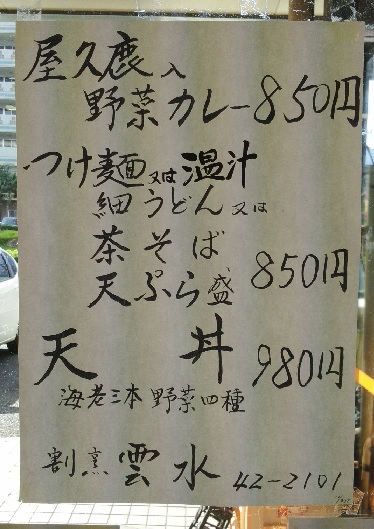 屋久鹿入
野菜カレー850円
つけ麺又は温汁
細うどん又は
茶そば
天ぷら盛 850円
天丼 980円
海老三本 野菜四種
割烹 雲水 42-2101